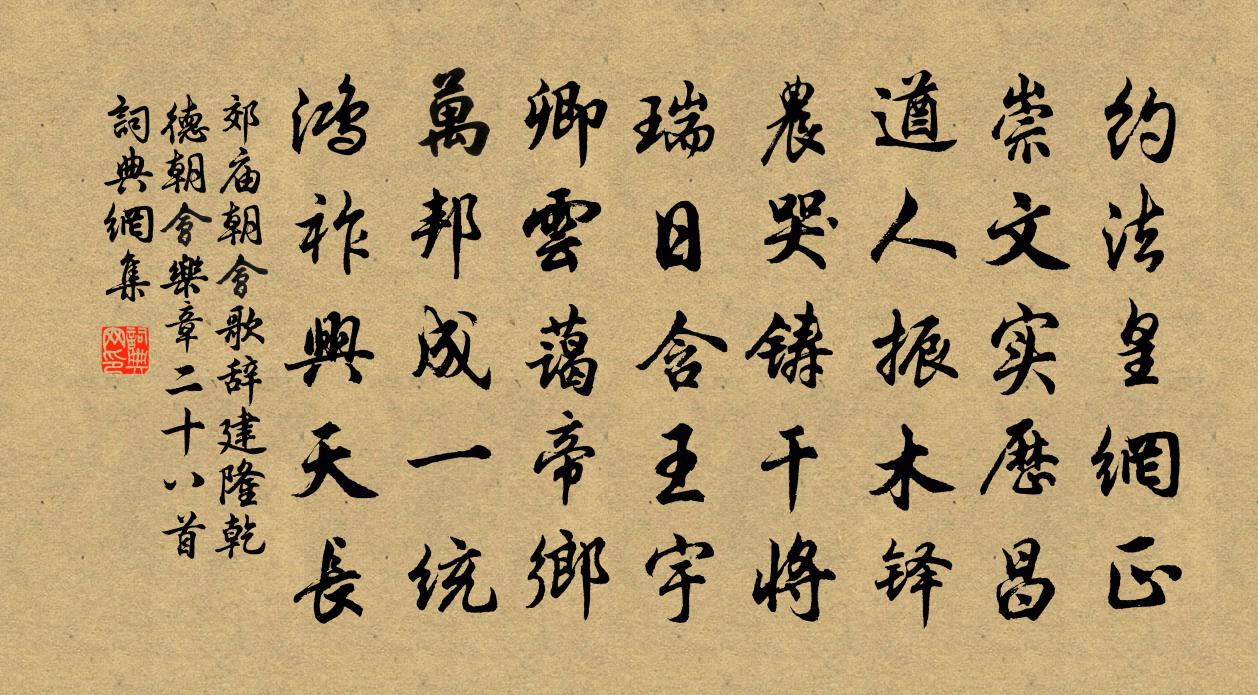 约法皇綱正
崇文实厯昌
遒人振木铎
農器铸干將
瑞日含王宇
卿雲藹帝鄉
萬邦成一統
鴻祚興天長
郊庙朝會歌辞建隆乾
德朝會樂章二十八首
詞典網集
詞典网印